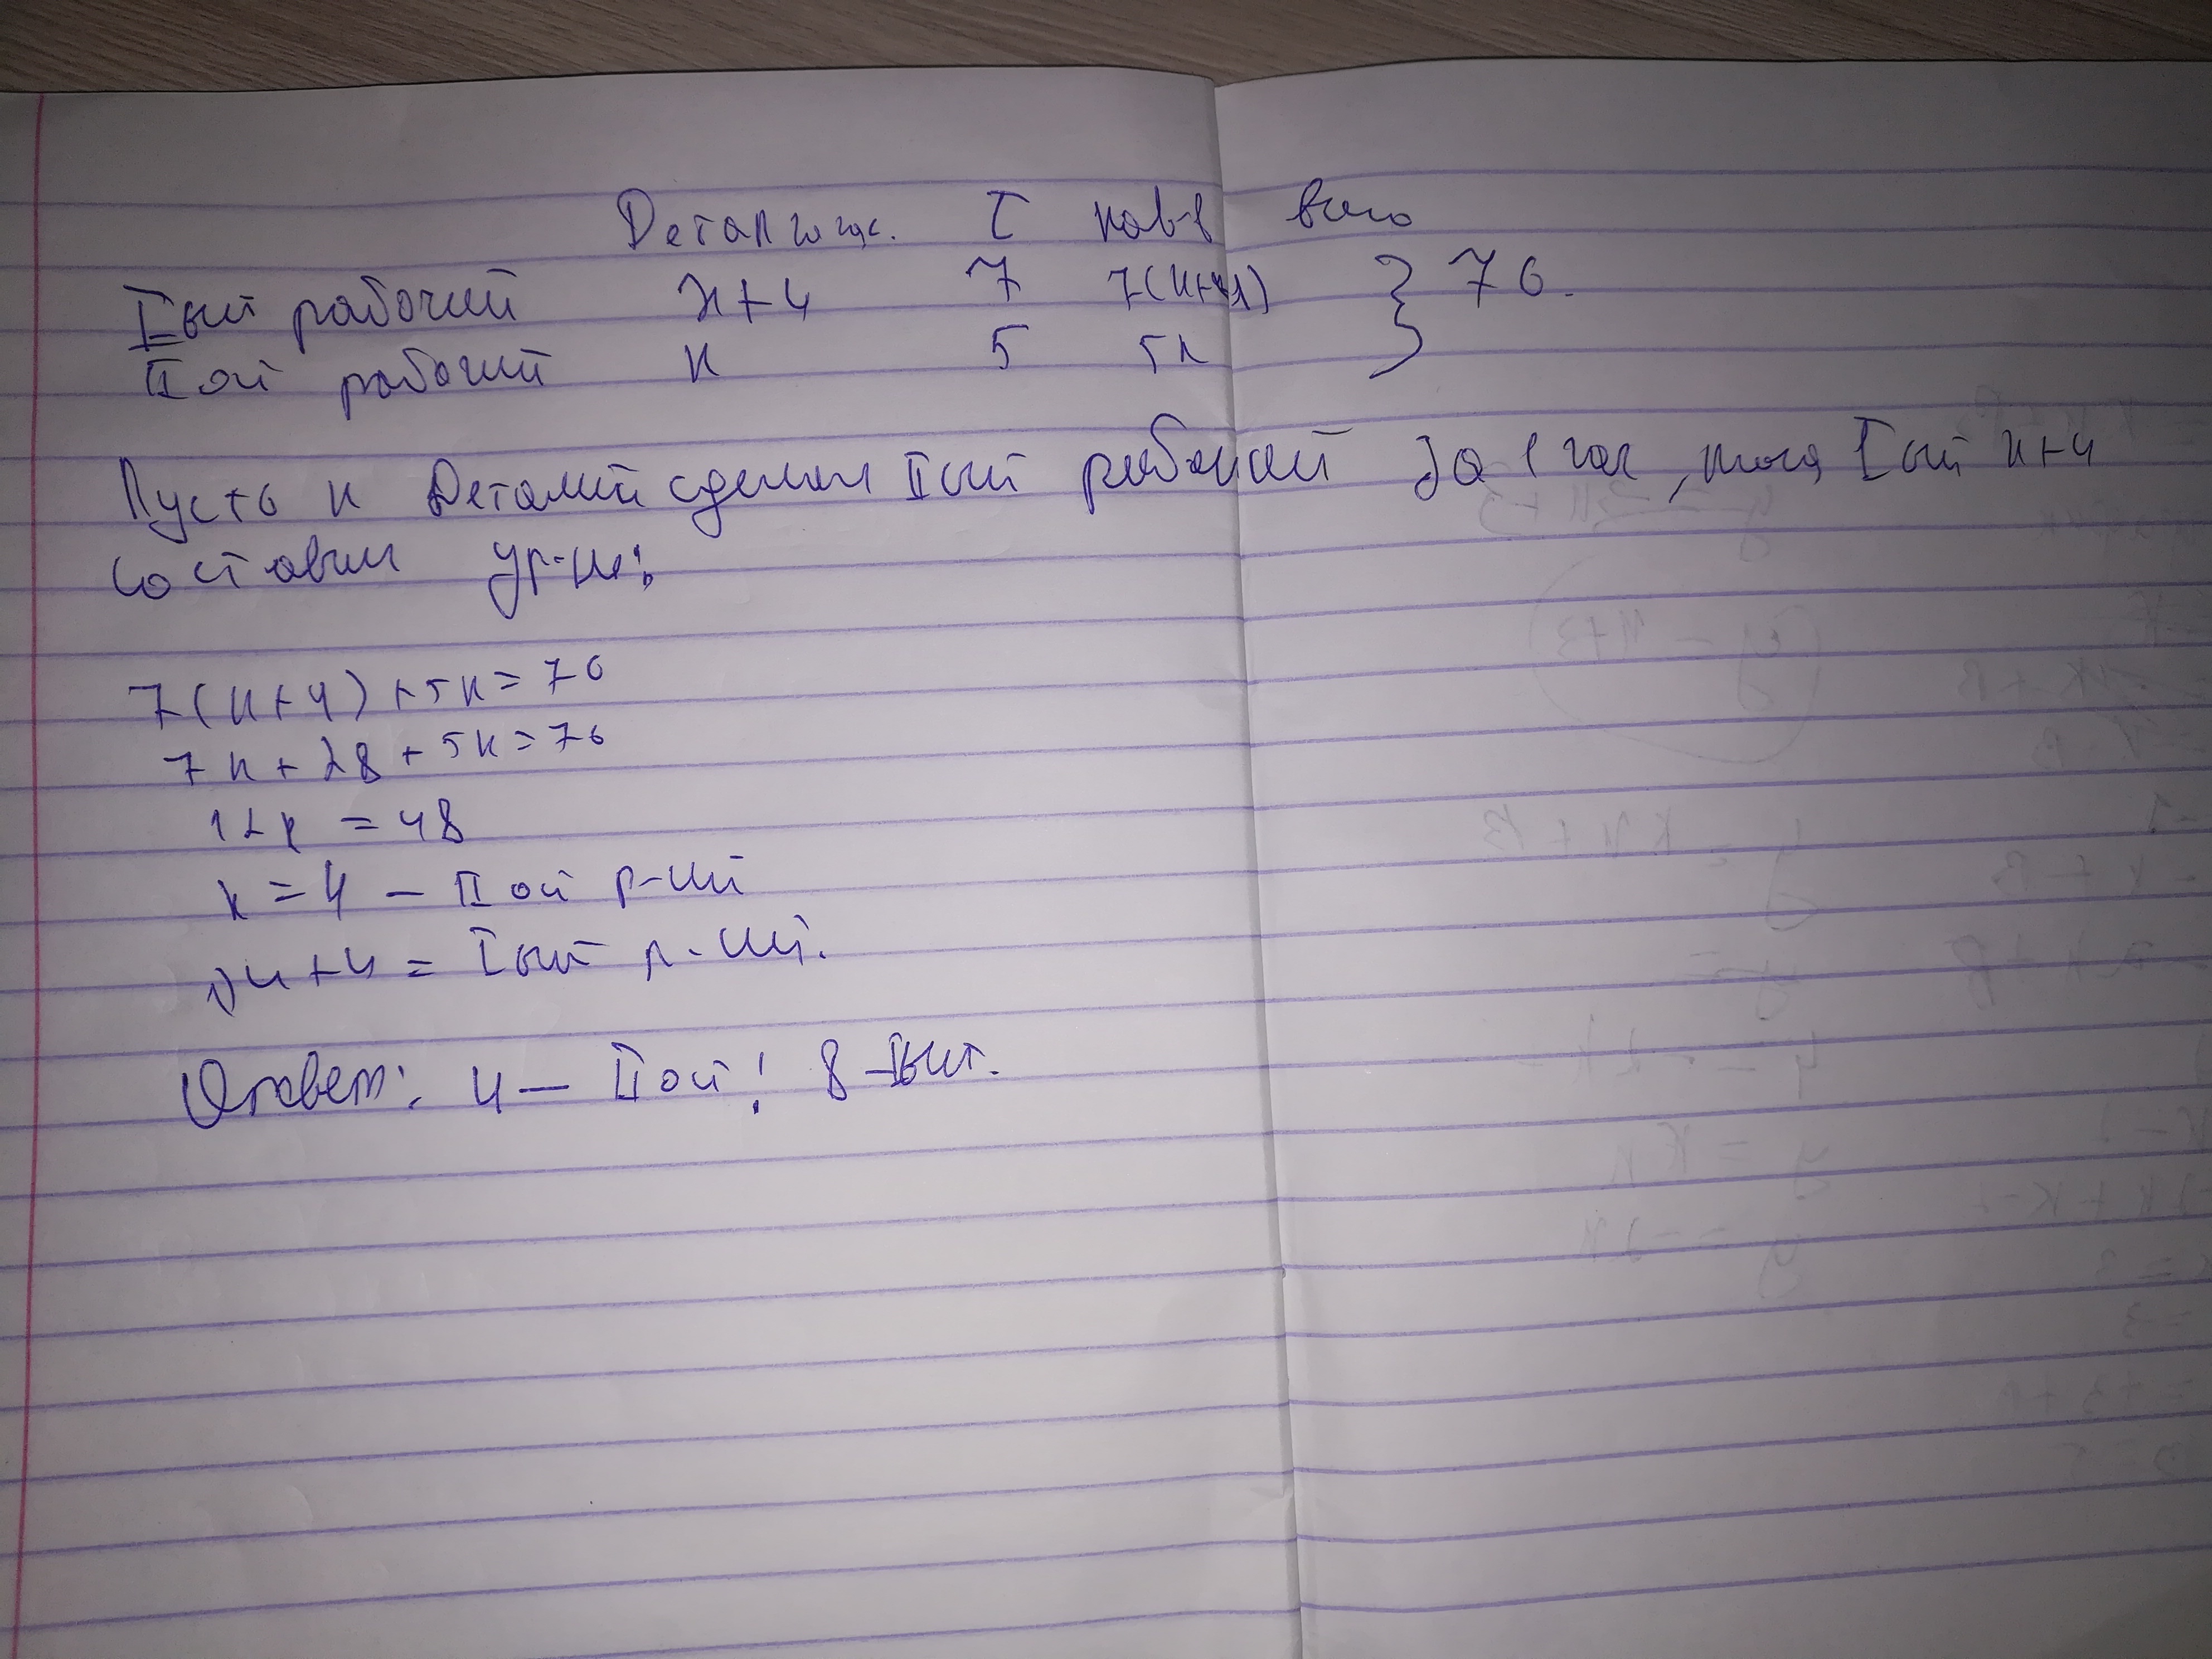 Детал за час. t кол-в всего
I ый рабочий x+4 7 7(x+4) } 76.
II ой рабочий x 5 5x
Пусть x деталей сделал II ый рабочий за 1 час, тогда I ый x+4
составим ур-ие:
7(x+4)+5x=76
7x+28+5x=76
12x=48
x=4 – II ой р-ий
4+4= I ый р-ий.
Ответ: 4 – II ой; 8 – I ый.